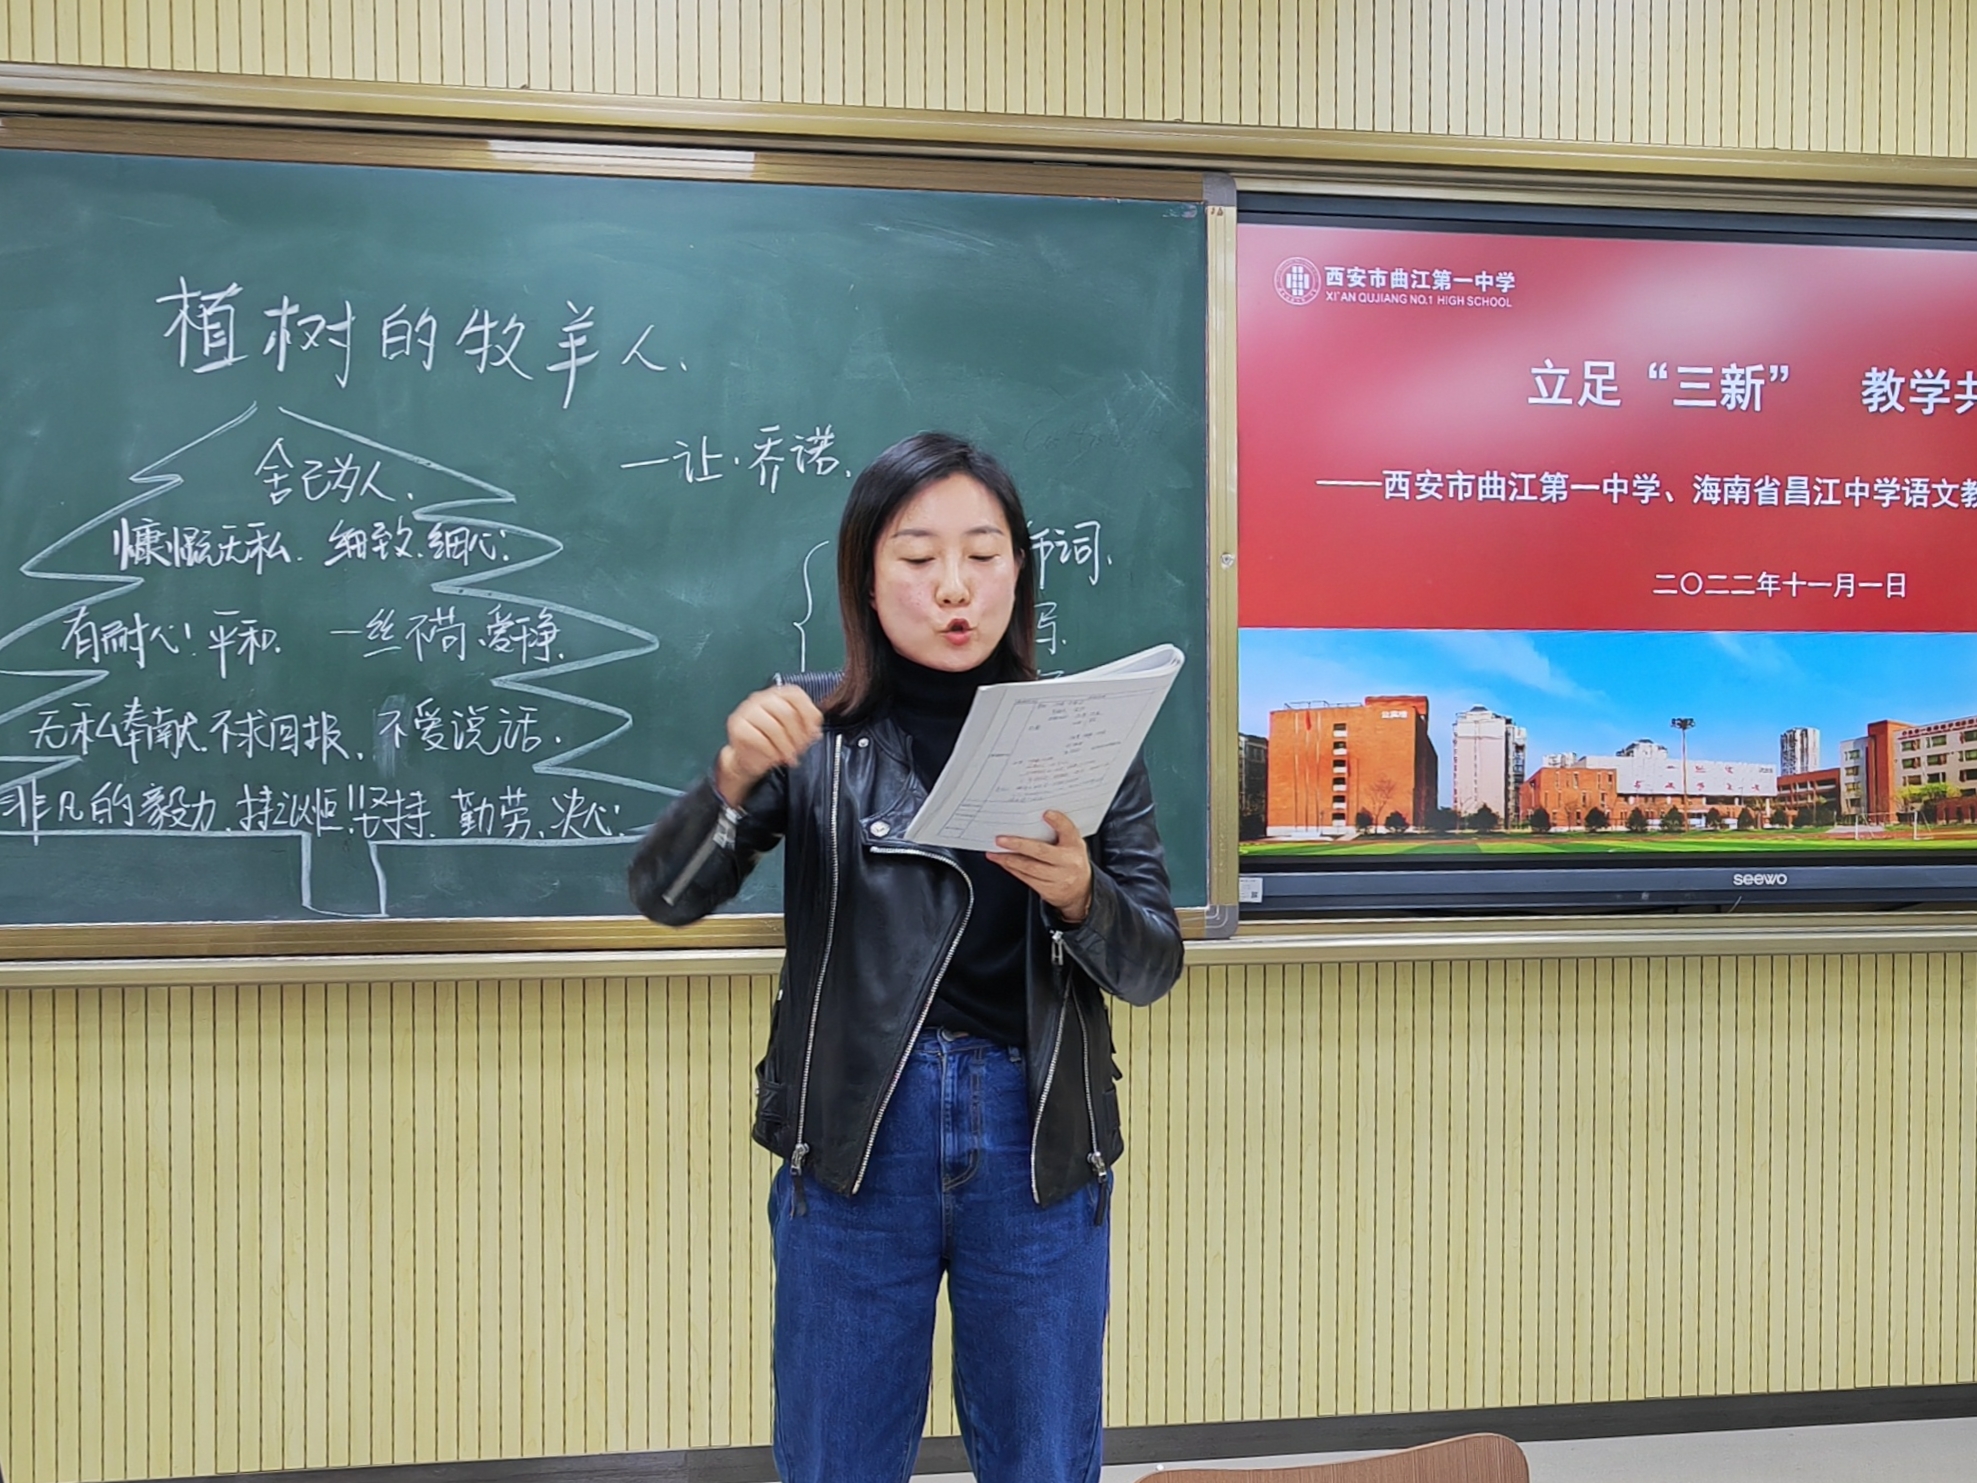 植树的牧羊人.
—让·乔诺.
舍己为人.
慷慨无私. 细致.细心.
有耐心!平和. 一丝不苟.爱干净.
无私奉献.不求回报. 不爱说话.
非凡的毅力.持之以恒!!坚持. 勤劳.决心!
词.
写.
西安市曲江第一中学
XI'AN QUJIANG NO.1 HIGH SCHOOL
立足“三新” 教学共
——西安市曲江第一中学、海南省昌江中学语文教
二〇二二年十一月一日
seewo